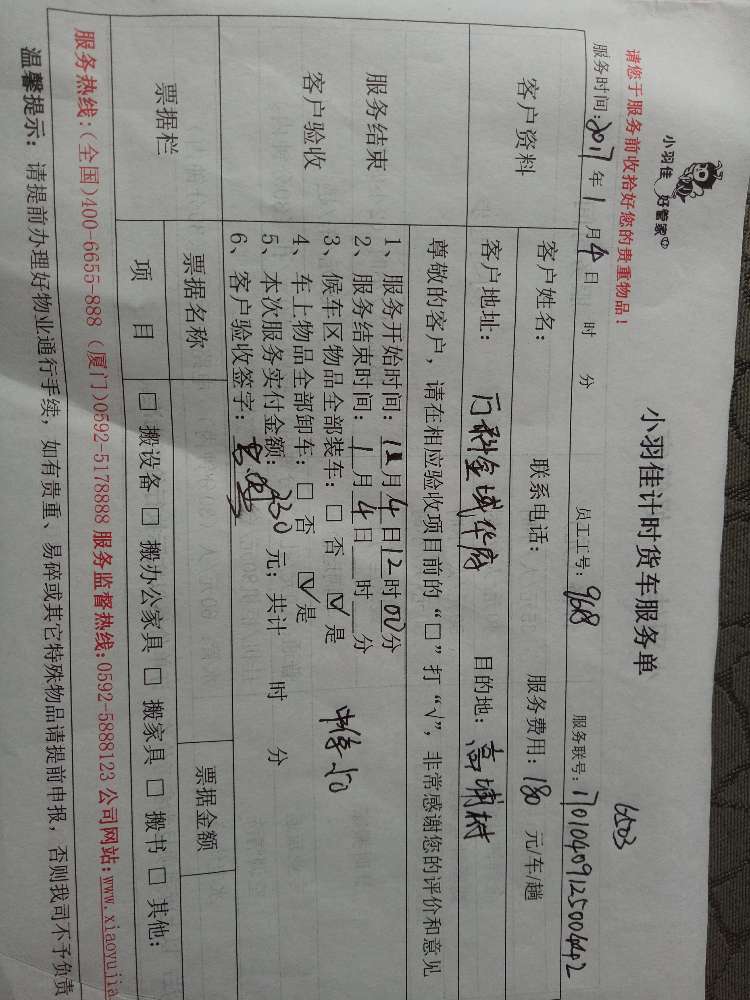 小羽佳 好管家
小羽佳计时货车服务单
6503
请您于服务前收拾好您的贵重物品！
服务时间：2017年1月4日 时 分 员工工号：968 服务联号：17010409125004442
客户资料
客户姓名： 联系电话： 服务费用：180 元/车/趟
客户地址：万科金域华府 目的地：高埔村
尊敬的客户，请在相应验收项目前的“□”打“√”，非常感谢您的评价和意见
服务结束
客户验收
1、服务开始时间：1月4日12时00分
2、服务结束时间：1月4日 时 分
3、候车区物品全部装车：□ 否 ☑ 是
4、车上物品全部卸车：□ 否 ☑ 是
中停50
5、本次服务实付金额：230元；共计 时 分
6、客户验收签字：
票据栏
票据名称 票据金额
项 目 □ 搬设备 □ 搬办公家具 □ 搬家具 □ 搬书 □ 其他：
服务热线：(全国)400-6655-888 (厦门)0592-5178888 服务监督热线:0592-5888123 公司网站:www.xiaoyujia
温馨提示：请提前办理好物业通行手续，如有贵重、易碎或其它特殊物品请提前申报，否则我司不予负责